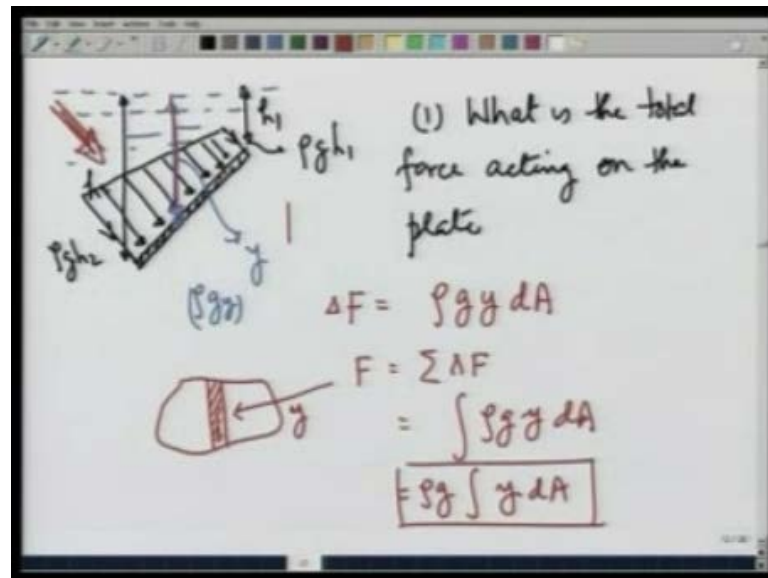 h₁
ρgh₁
h
ρgh₂
y
(ρgy)
(1) What is the total
force acting on the
plate
ΔF = ρgy dA
F = Σ ΔF
y
= ∫ ρgy dA
= ρg ∫ y dA